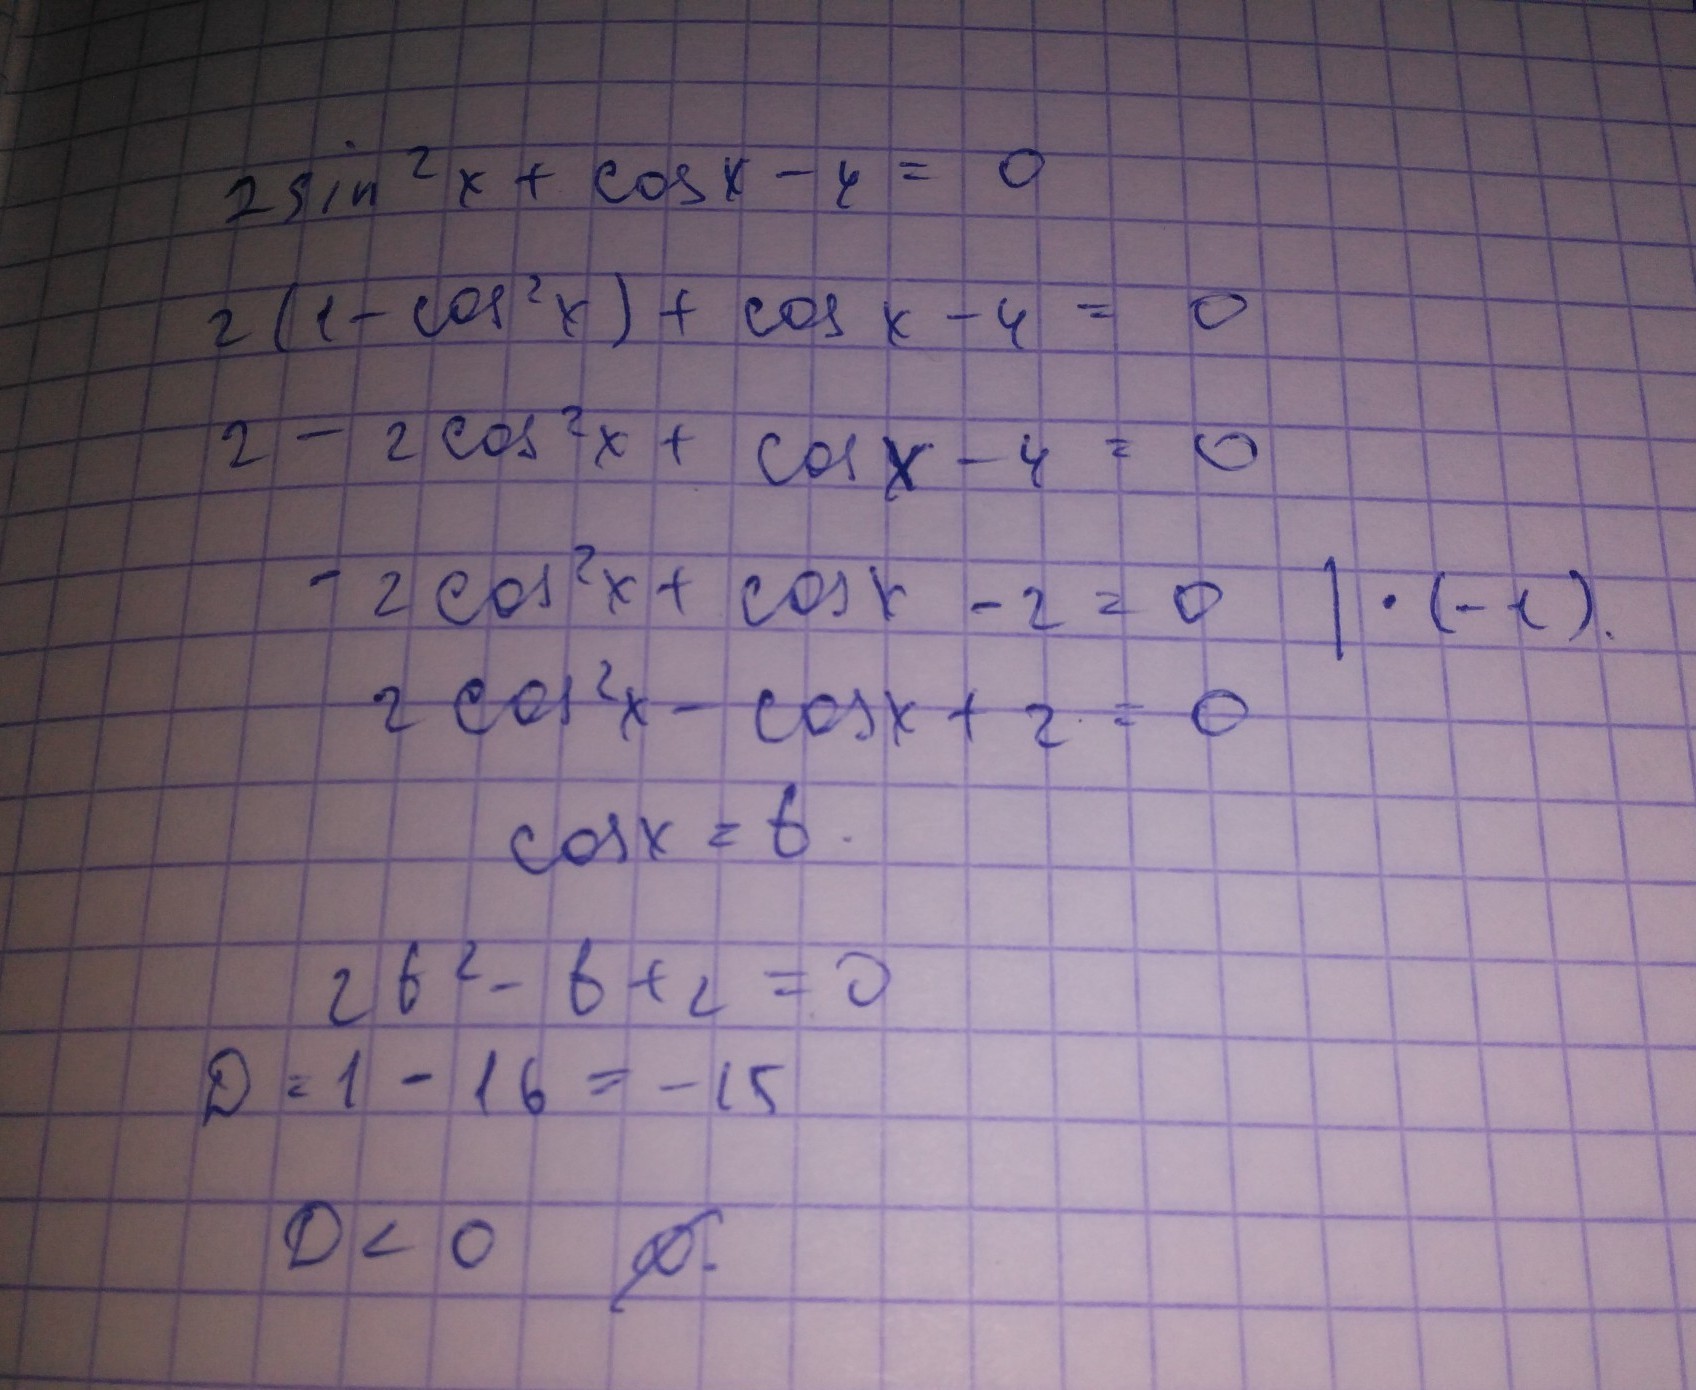 2sin²x + cosx - 4 = 0
2(1 - cos²x) + cos x - 4 = 0
2 - 2cos²x + cosx - 4 = 0
- 2cos²x + cosx - 2 = 0 | · (-1).
2cos²x - cosx + 2 = 0
cosx = b.
2b² - b + 2 = 0
D = 1 - 16 = -15
D < 0 ∅.